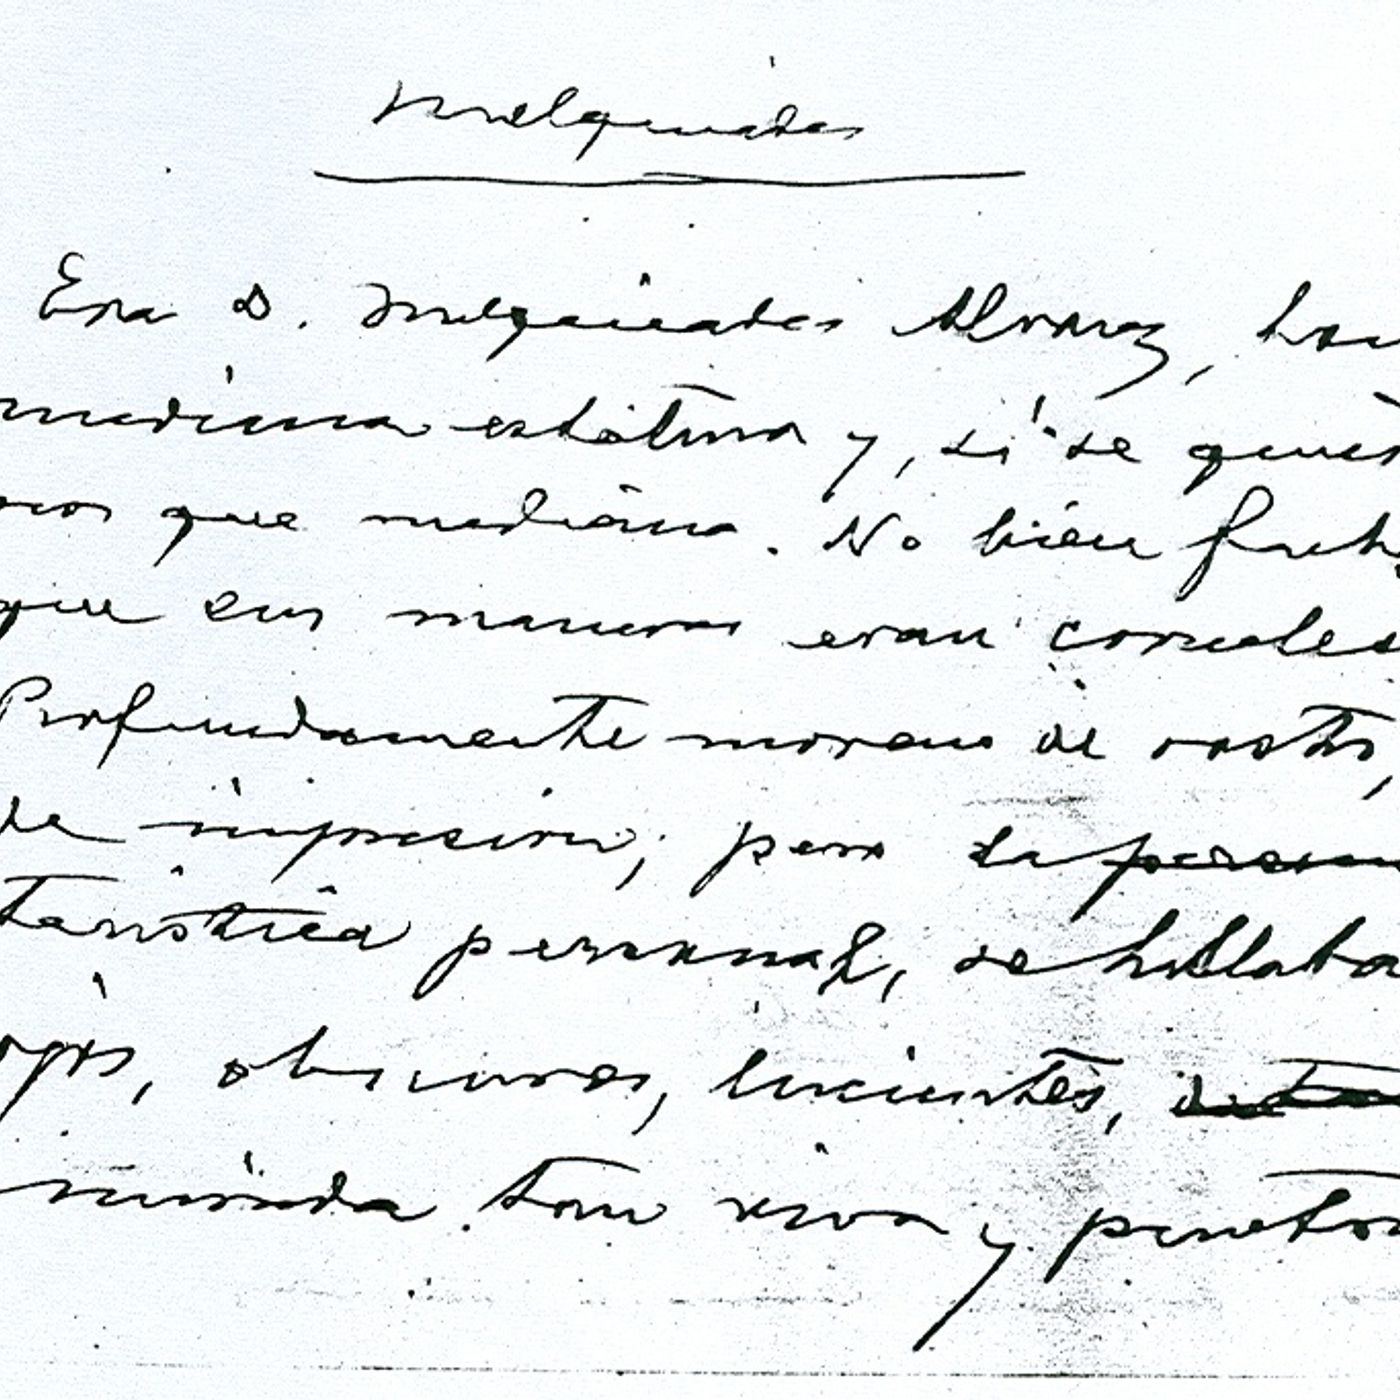 Melquiades
Era D. Melquiades Alvarez, hom
mediana estatura y, si se quier
que mediana. No bien
que sus maneras eran
Profundamente moreno de rostro,
de impresión; pero la person
terística personal, se hallaba
ojos, obscuros, lucientes,
mirada tan viva y penetra